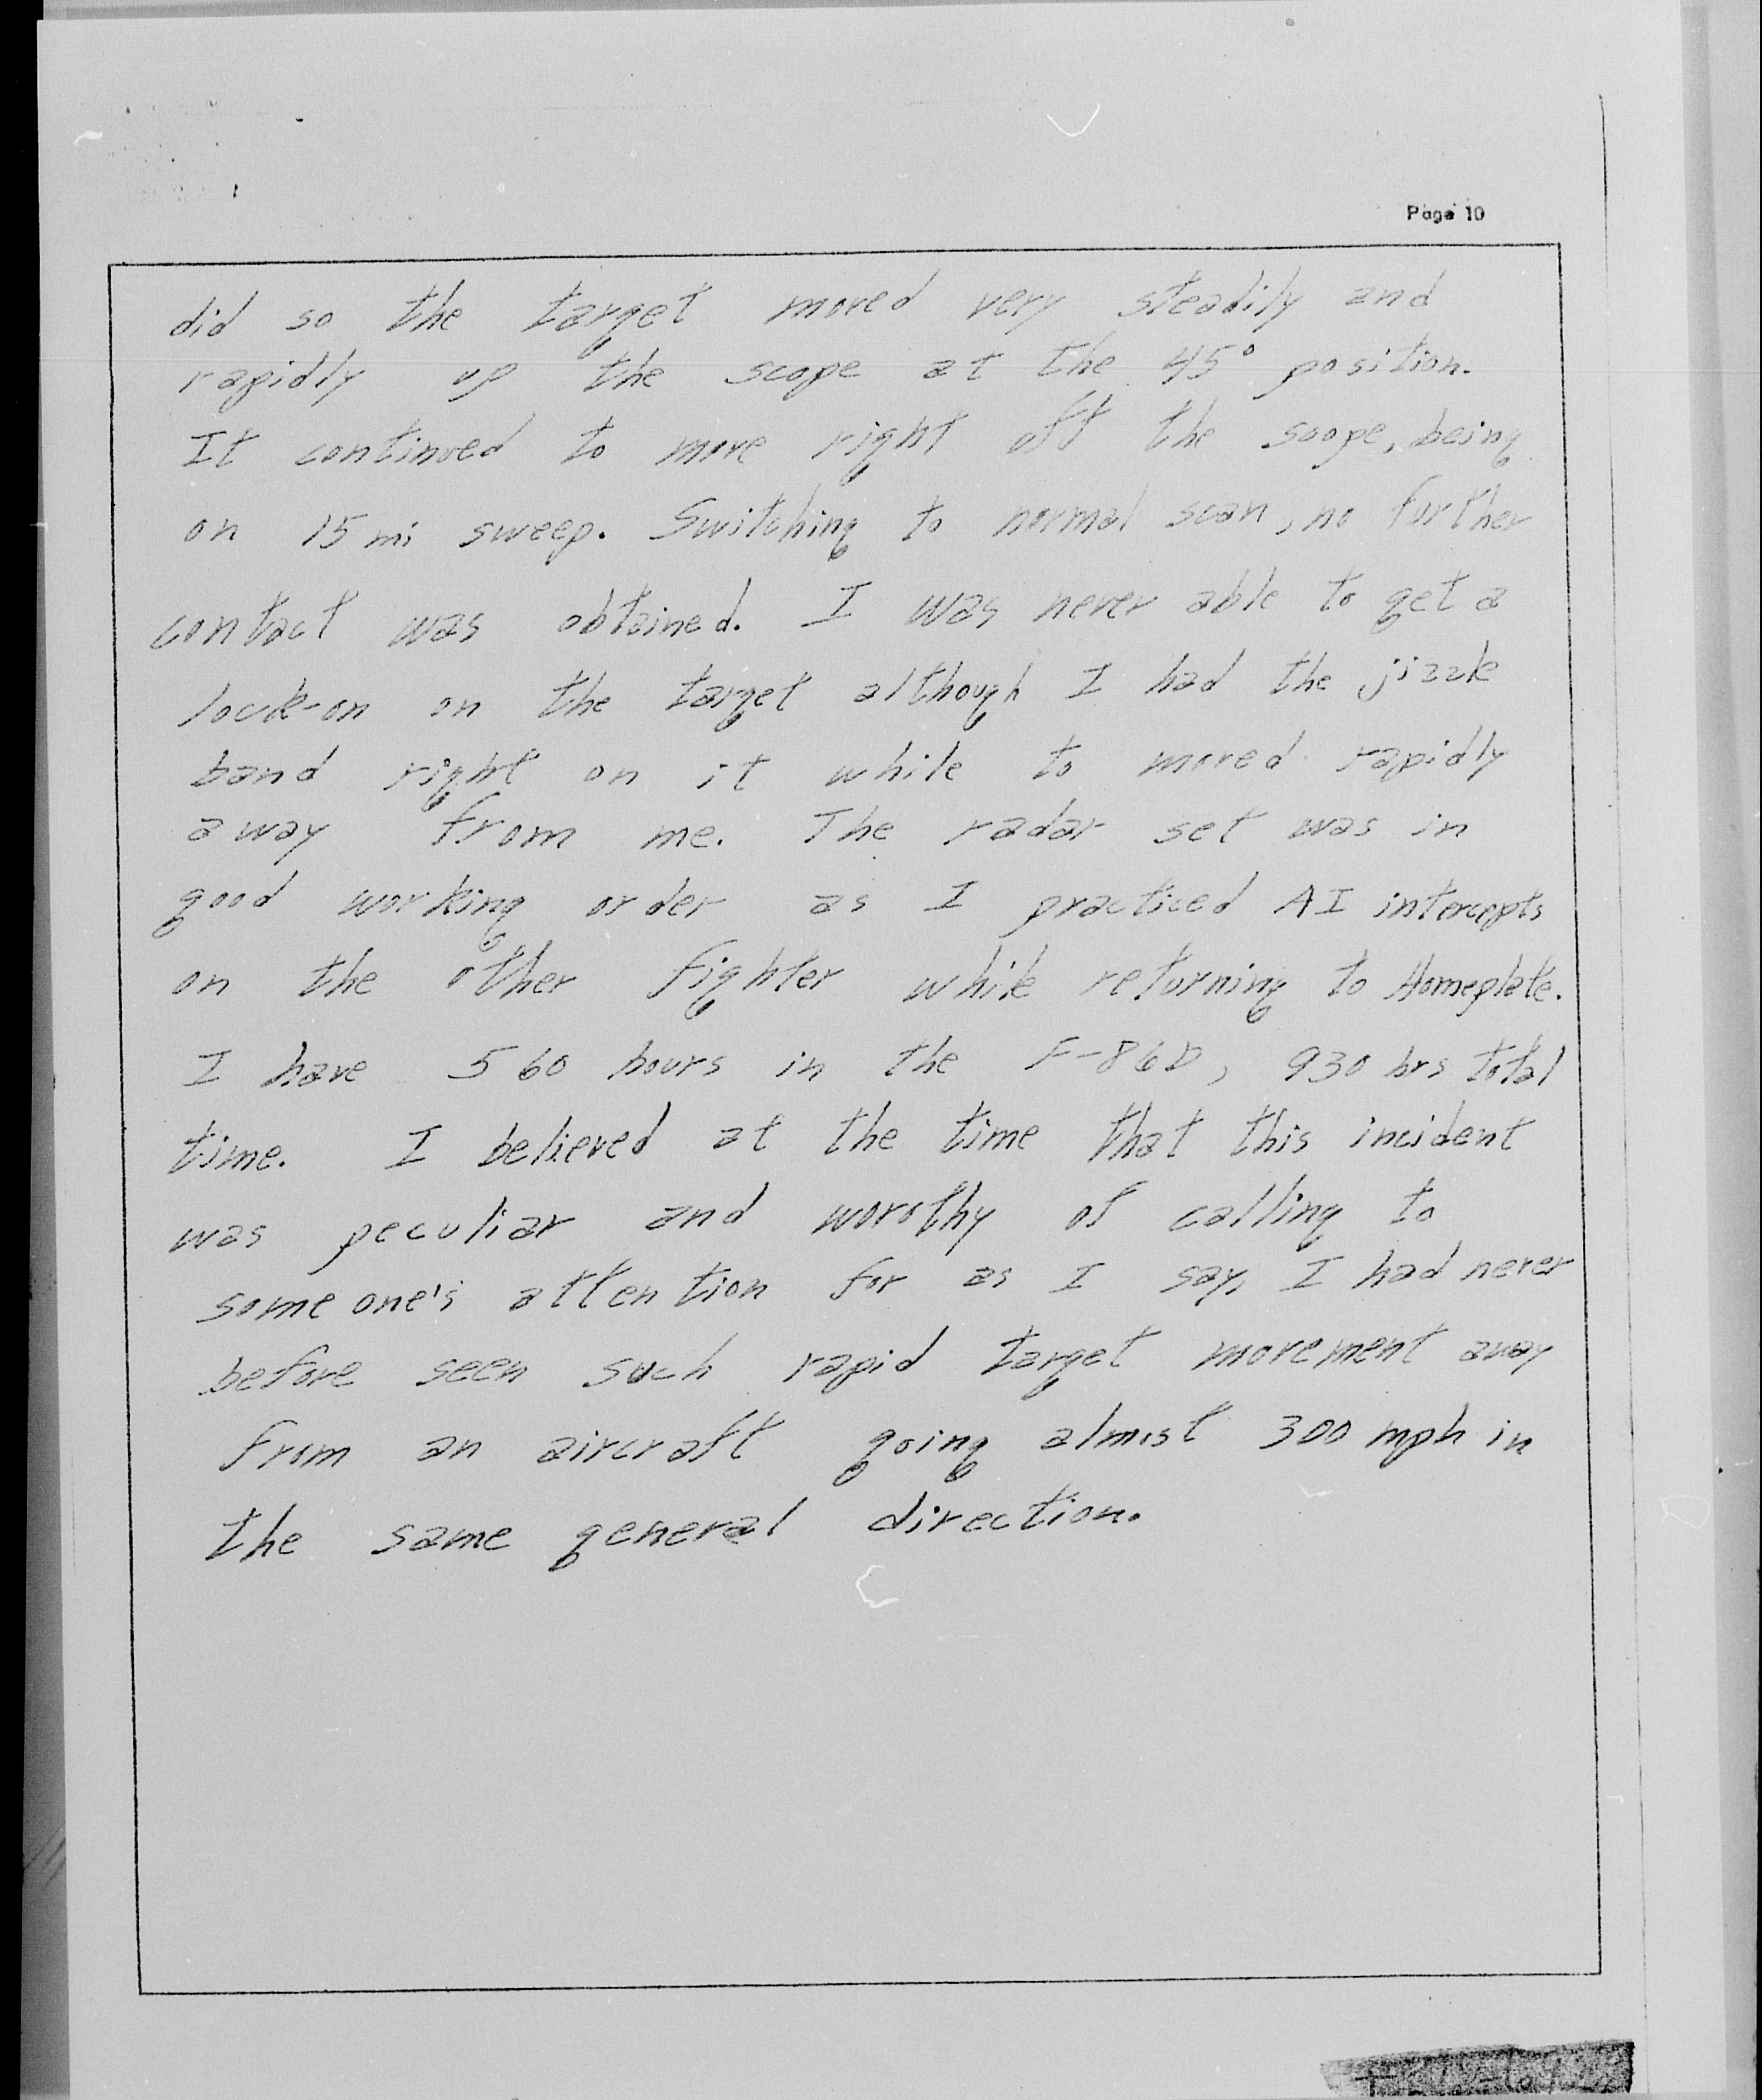 Page 10
did so the target moved very steadily and
rapidly up the scope at the 45° position.
It continued to move right off the scope, being
on 15 mi sweep. Switching to normal scan, no further
contact was obtained. I was never able to get a
lock-on on the target although I had the jizzle
band right on it while to moved rapidly
away from me. The radar set was in
good working order as I practiced AI intercepts
on the other fighter while returning to Homeplate.
I have 560 hours in the F-86D, 930 hrs total
time. I believed at the time that this incident
was peculiar and worothy of calling to
someone's attention for as I say, I had never
before seen such rapid target movement away
from an aircraft going almost 300 mph in
the same general direction.